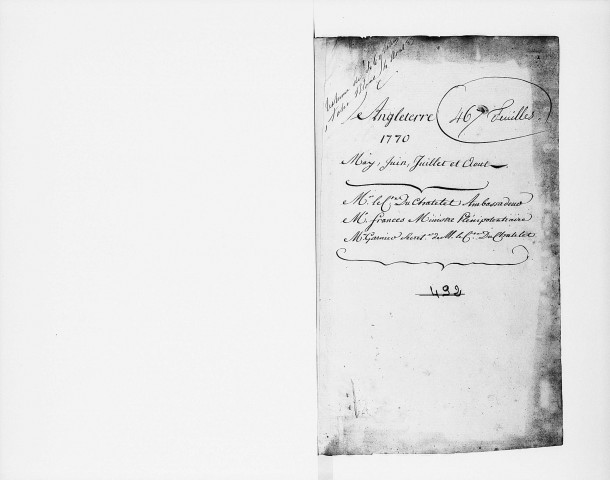 Angleterre 467 Feuilles.
1770
May, Juin, Juillet et Aout
Mr. le Cte. Du Chatelet Ambassadeur
Mr. frances Ministre Plénipotentiaire
Mr. Garnier Secret.re de M. le Cte. Du Chatelet
492